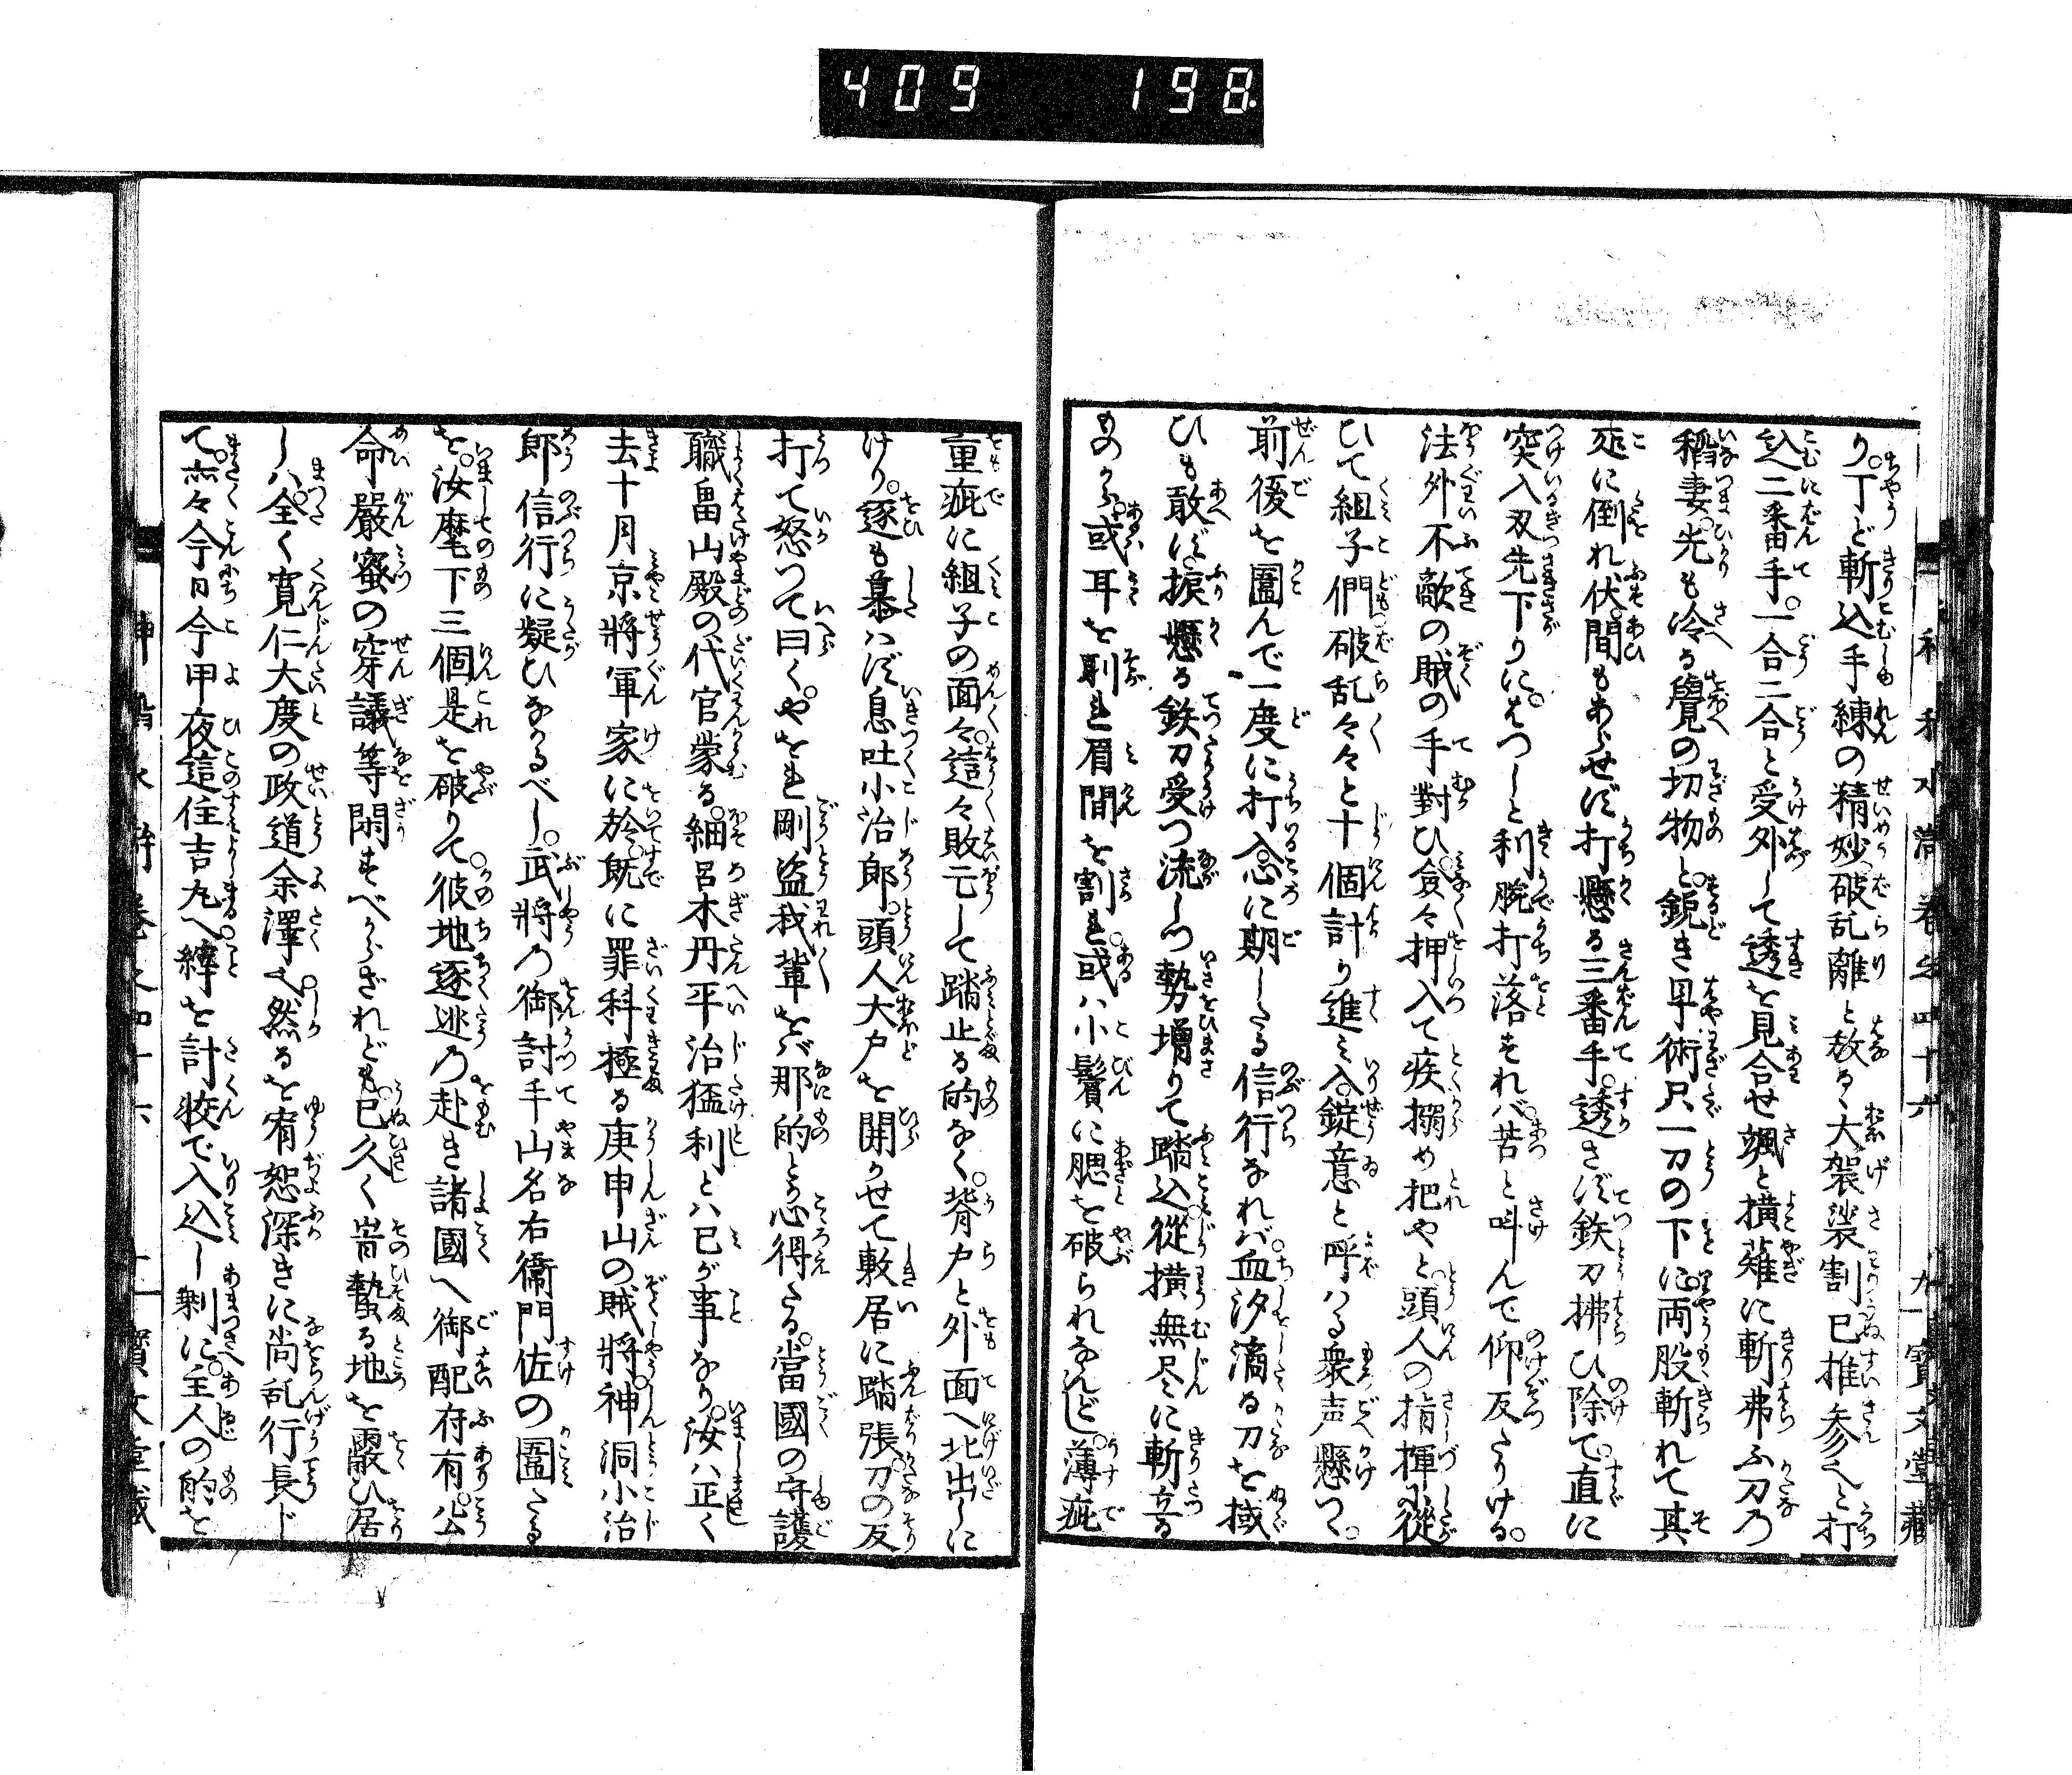 409 198
り。丁ど斬込手練の精妙破乱離と放る大袈裟割巳推参と打
込二番手。一合二合と受外して透を見合せ颯と横薙に斬弗ふ刀の
稲妻。先も冷る覺の切物と。鋭き早術只一刀の下に。両股斬れて其
処に倒れ伏。間もあらせず打懸る三番手。透さず鉄刀拂ひ除て。直に
突入刄先下りに。はつしと利腕打落すれバ。苦と叫んで仰反たりける。
法外不敵の賊の手對ひ。僉々押入て疾搦め把やと。頭人の指揮に從
ひて組子們破乱々々と十個計り進み入。錠意と呼ハる衆声懸つゝ。
前後を圍んで一度に打入。念に期したる信行なれバ。血汐滴る刀を揻
ひも敢ず振懸る鉄刀受つ流しつ勢増りて踏込。從横無尽に斬立る
ものから。或耳を剕れ眉間を割れ。或ハ小鬢に腮を破られなんど。薄疵
重疵に組子の面々。這々敗亡して踏止る的なく。背戸と外面へ迯出しに
けり。逐も慕ハず息吐小治郎。頭人大戸を開かせて敷居に踏張。刀の反
打て怒つて曰く。やをれ剛盗我輩をバ那的とか心得たる。當國の守護
職畠山殿の代官蒙る。細呂木丹平治猛利とハ己が事なり。汝ハ正く
去十月京將軍家に於。既に罪科極る庚申山の賊將。神洞小治
郎信行に疑ひなかるべし。武將の御討手山名右衞門佐の圍たる
を。汝麾下三個是を破りて。彼地逐迯の赴き諸國へ御配府有。公
命嚴蜜の穿議等閑すべからざれども。己久く岢蟄る地を覆ひ居
しハ。全く寛仁大度の政道余澤也。然るを宥恕深きに尚乱行長じ
て。亦々今日今甲夜這住吉丸へ縡を計較で入込し剰に。主人の的を